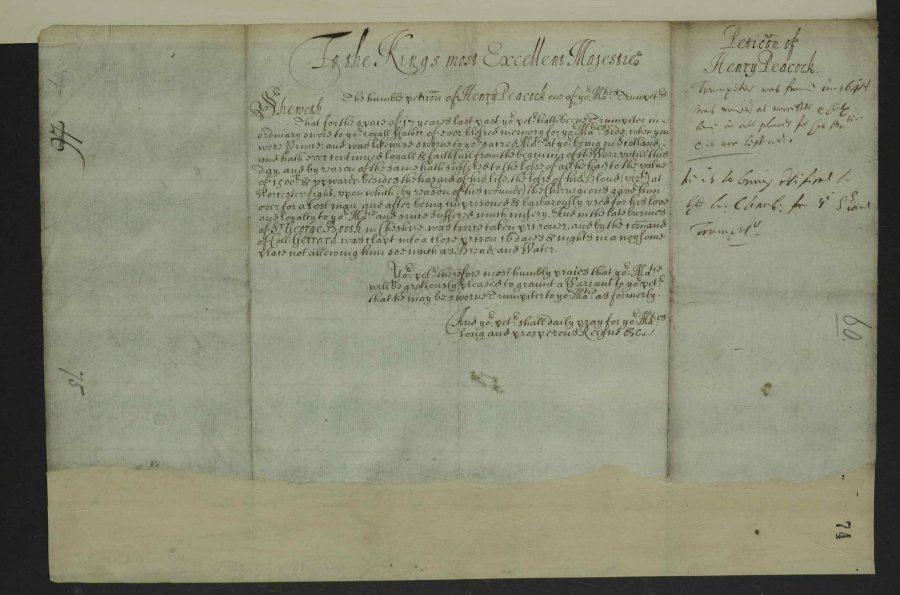 To the Kings most Excellent Majestie
The humble petic̃on of Henry Peacock one of yoʳ Maᵗⁱᵉˢ Trumpetʳˢ
Sheweth
That for the space of 17 yeares last past yoʳ petʳ hath beene Trumpiter in
ordinary sworne to yoʳ royall Father of ever blessed memory for yoʳ Maᵗⁱᵉˢ side, when you
were Prince, and was likewise sworne to yoʳ sacred Maᵗⁱᵉ at yoʳ being in Scotland,
and hath ever continued loyall & faithfull from the begining of the Warr untill this
day, and by reason of the same hath suffered to the losse of all he had to the value
of 1500ˡ & upwards besides the hazard of his life, the losse of his Bloud (vizᵗ) at
Worcester fight, upon which (by reason of his wounds) the Chirurgions gave him
over for a lost man, and after being imprisoned & barbarously used for his love
and loyalty to yoʳ Maᵗⁱᵉ and since suffered much misery, And in the late busines
of Sʳ George Booth in Cheshire was twice taken prisoner, and by the com̃and
of Coll. Gerrard was clapt into a close prison 16 dayes & nights in a noysome
place not allowing him soe much as Bread and Water.
Yoʳ petʳ therefore most humbly praies that yoʳ Maᵗⁱᵉ
will be gratiously pleased to graunt a Warrant to yoʳ petʳ
that he may be sworne Trumpiter to yoʳ Maᵗⁱᵉ as formerly.
And yoʳ petʳ shall daily pray for yoʳ Maᵗⁱᵉˢ
long and prosperous Reigne &c.
Petic̃on of
Henry Peacock.
Trumpeter was sworne in 164
was wounded at worcester
in all places for his Maᵗⁱᵉ
& is now left out.
he is to bring
Lᵈ Chamb. for yᵉ
Trumpetʳ
97
75
60
74